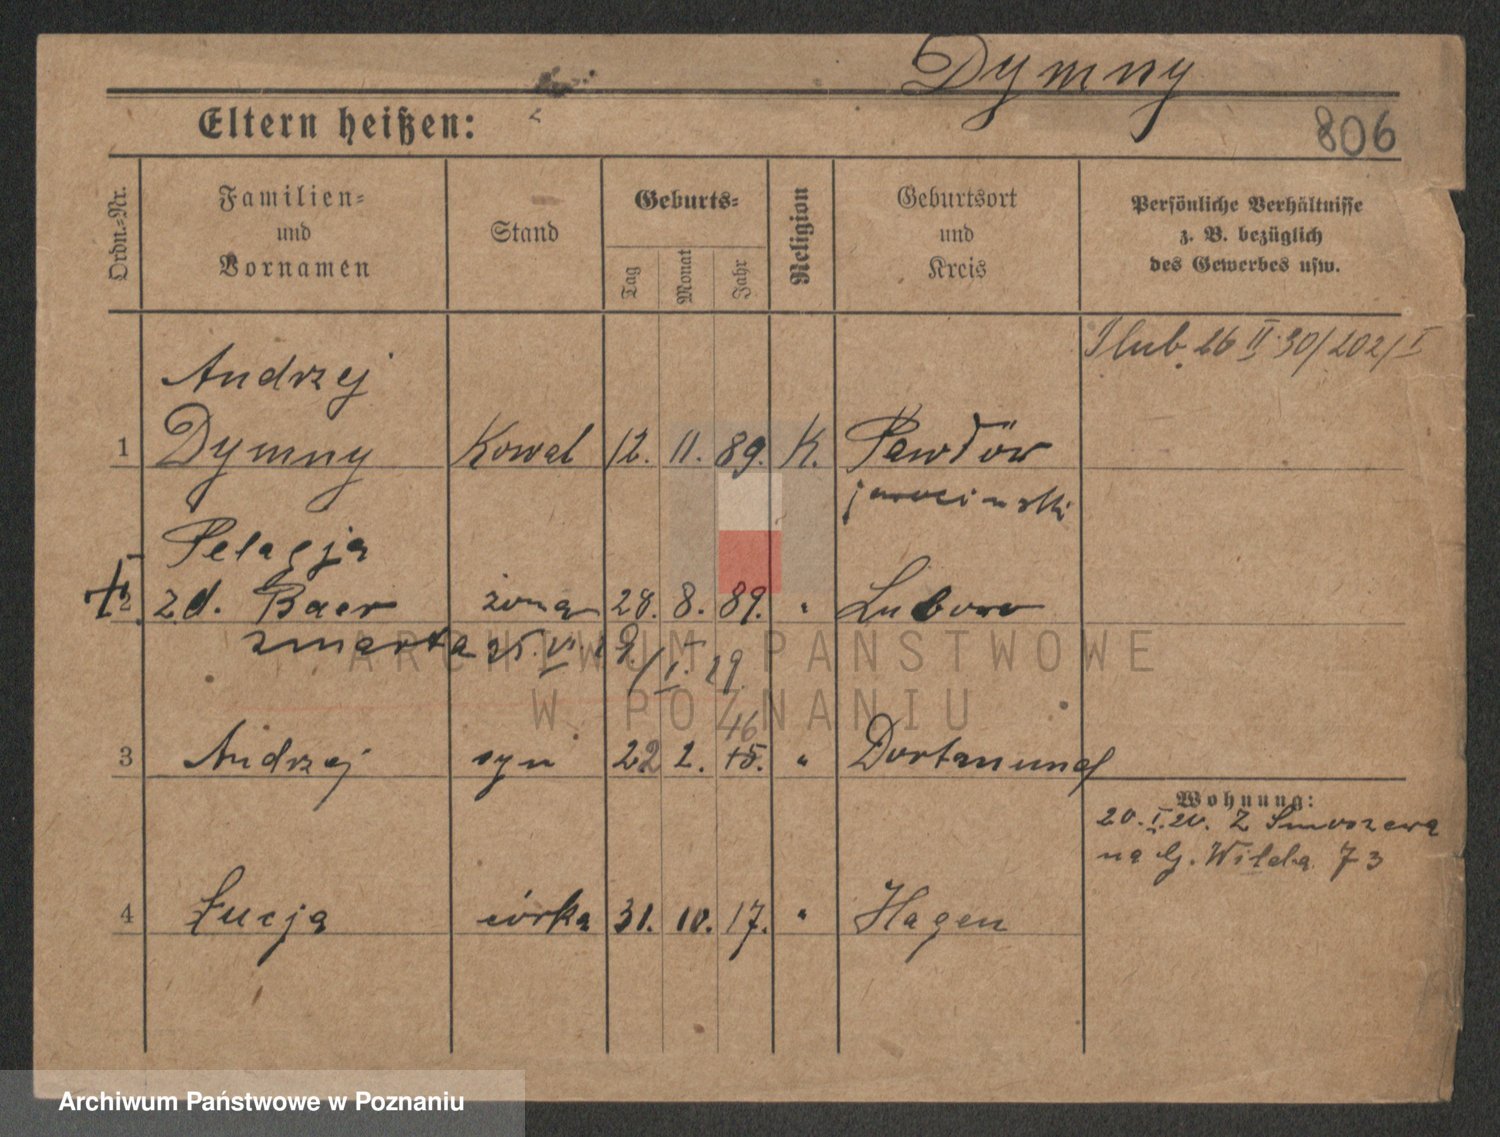 Dymny
Eltern heißen:
806
Ordn.-Nr.
Familien-
und
Vornamen
Stand
Geburts-
Tag
Monat
Jahr
Religion
Geburtsort
und
Kreis
Persönliche Verhältnisse
z. B. bezüglich
des Gewerbes usw.
26 II 30/202/I
Andrzej
1 Dymny Kowal 12. 11. 89. K. Pawłów
jarocinski
Pelagja
2 zd. Baer żona 28. 8. 89. " Luboro
zmarta 25. VI.
/I. 29
ARCHIWUM PAŃSTWOWE
W POZNANIU
16
3 Andrzej syn 22 2. 15. " Dortmund
Wohnung:
20. I. 20. Z Smoszewa
na G. Wilda 73
4 Łucja córka 31. 10. 17. " Hagen
Archiwum Państwowe w Poznaniu